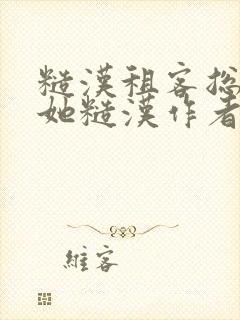 糙漢租客總
她糙漢作者
維客